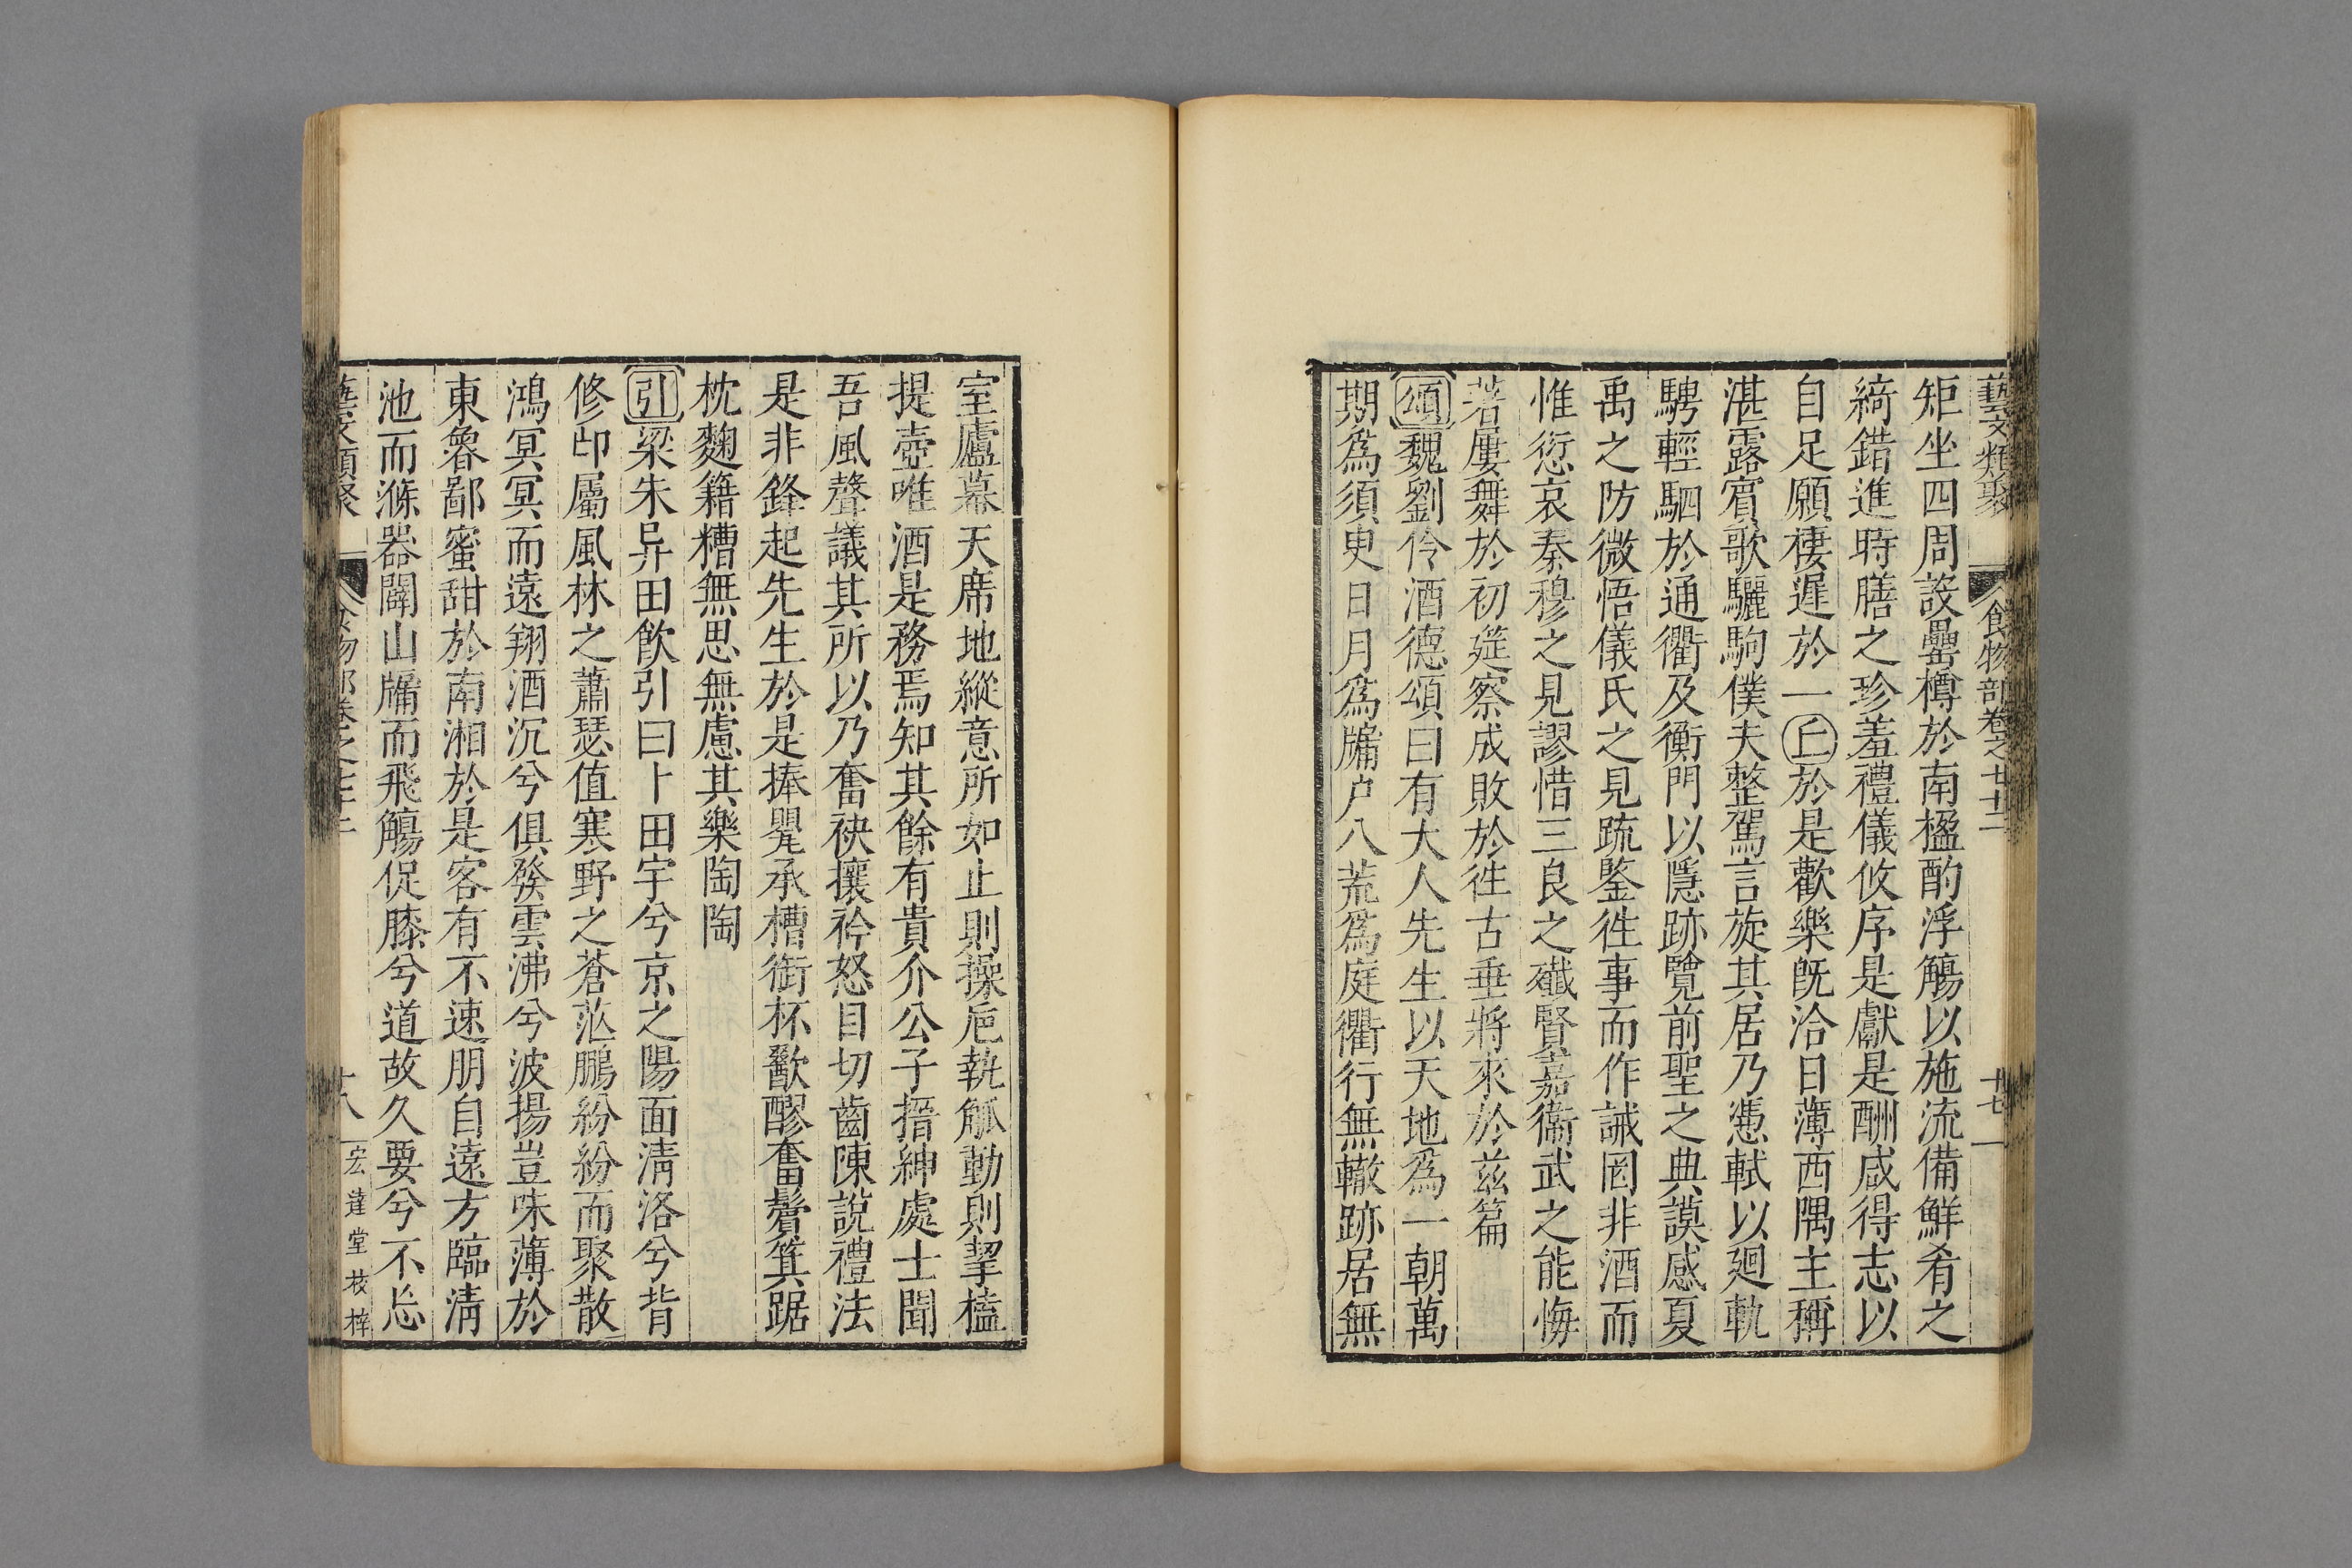 藝文類聚 食物部卷之七十二 十七
矩坐四周設罍樽於南楹酌浮觴以施流備鮮肴之
綺錯進時膳之珍羞禮儀攸序是獻是酬咸得志以
自足願棲遲於一丘於是歡樂旣洽日薄西隅主稱
湛露賓歌驪駒僕夫整駕言旋其居乃憑軾以廻軌
騁輕駟於通衢及衡門以隱跡覽前聖之典謨感夏
禹之防微悟儀氏之見疏鑒徃事而作誡罔非酒而
惟愆哀秦穆之見謬惜三良之殲賢嘉衞武之能悔
著屢舞於初筵察成敗於徃古垂將來於茲篇
頌魏劉伶酒德頌曰有大人先生以天地爲一朝萬
期爲須臾日月爲牖戶八荒爲庭衢行無轍跡居無
室廬幕天席地縱意所如止則操巵執觚動則挈榼
提壺唯酒是務焉知其餘有貴介公子搢紳處士聞
吾風聲議其所以乃奮袂攘衿怒目切齒陳說禮法
是非鋒起先生於是捧甖承槽銜杯歠醪奮鬢箕踞
枕麴籍糟無思無慮其樂陶陶
引梁朱异田飮引曰卜田宇兮京之陽面淸洛兮背
修卬屬風林之蕭瑟值寒野之蒼茫鵬紛紛而聚散
鴻冥冥而遠翔酒沉兮俱發雲沸兮波揚豈味薄於
東魯鄙蜜甜於南湘於是客有不速朋自遠方臨淸
池而滌器闢山牖而飛觴促膝兮道故久要兮不忘
藝文類聚 食物部卷之七十二 十八 宏達堂校梓